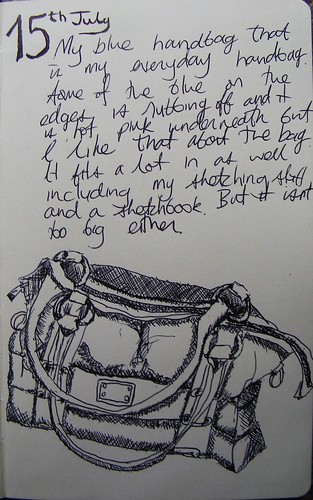 15th July
My blue handbag that
is my everyday handbag.
Some of the blue on the
edges is rubbing off and it
is hot pink underneath but
I like that about the bag.
It fits a lot in as well
including my sketching stuff
and a sketchbook. But it isnt
too big either